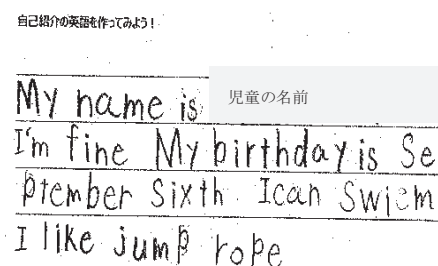 自己紹介の英語を作ってみよう！
My name is 児童の名前
I'm fine My birthday is Se
ptember sixth Ican Swiem
I like jump rope